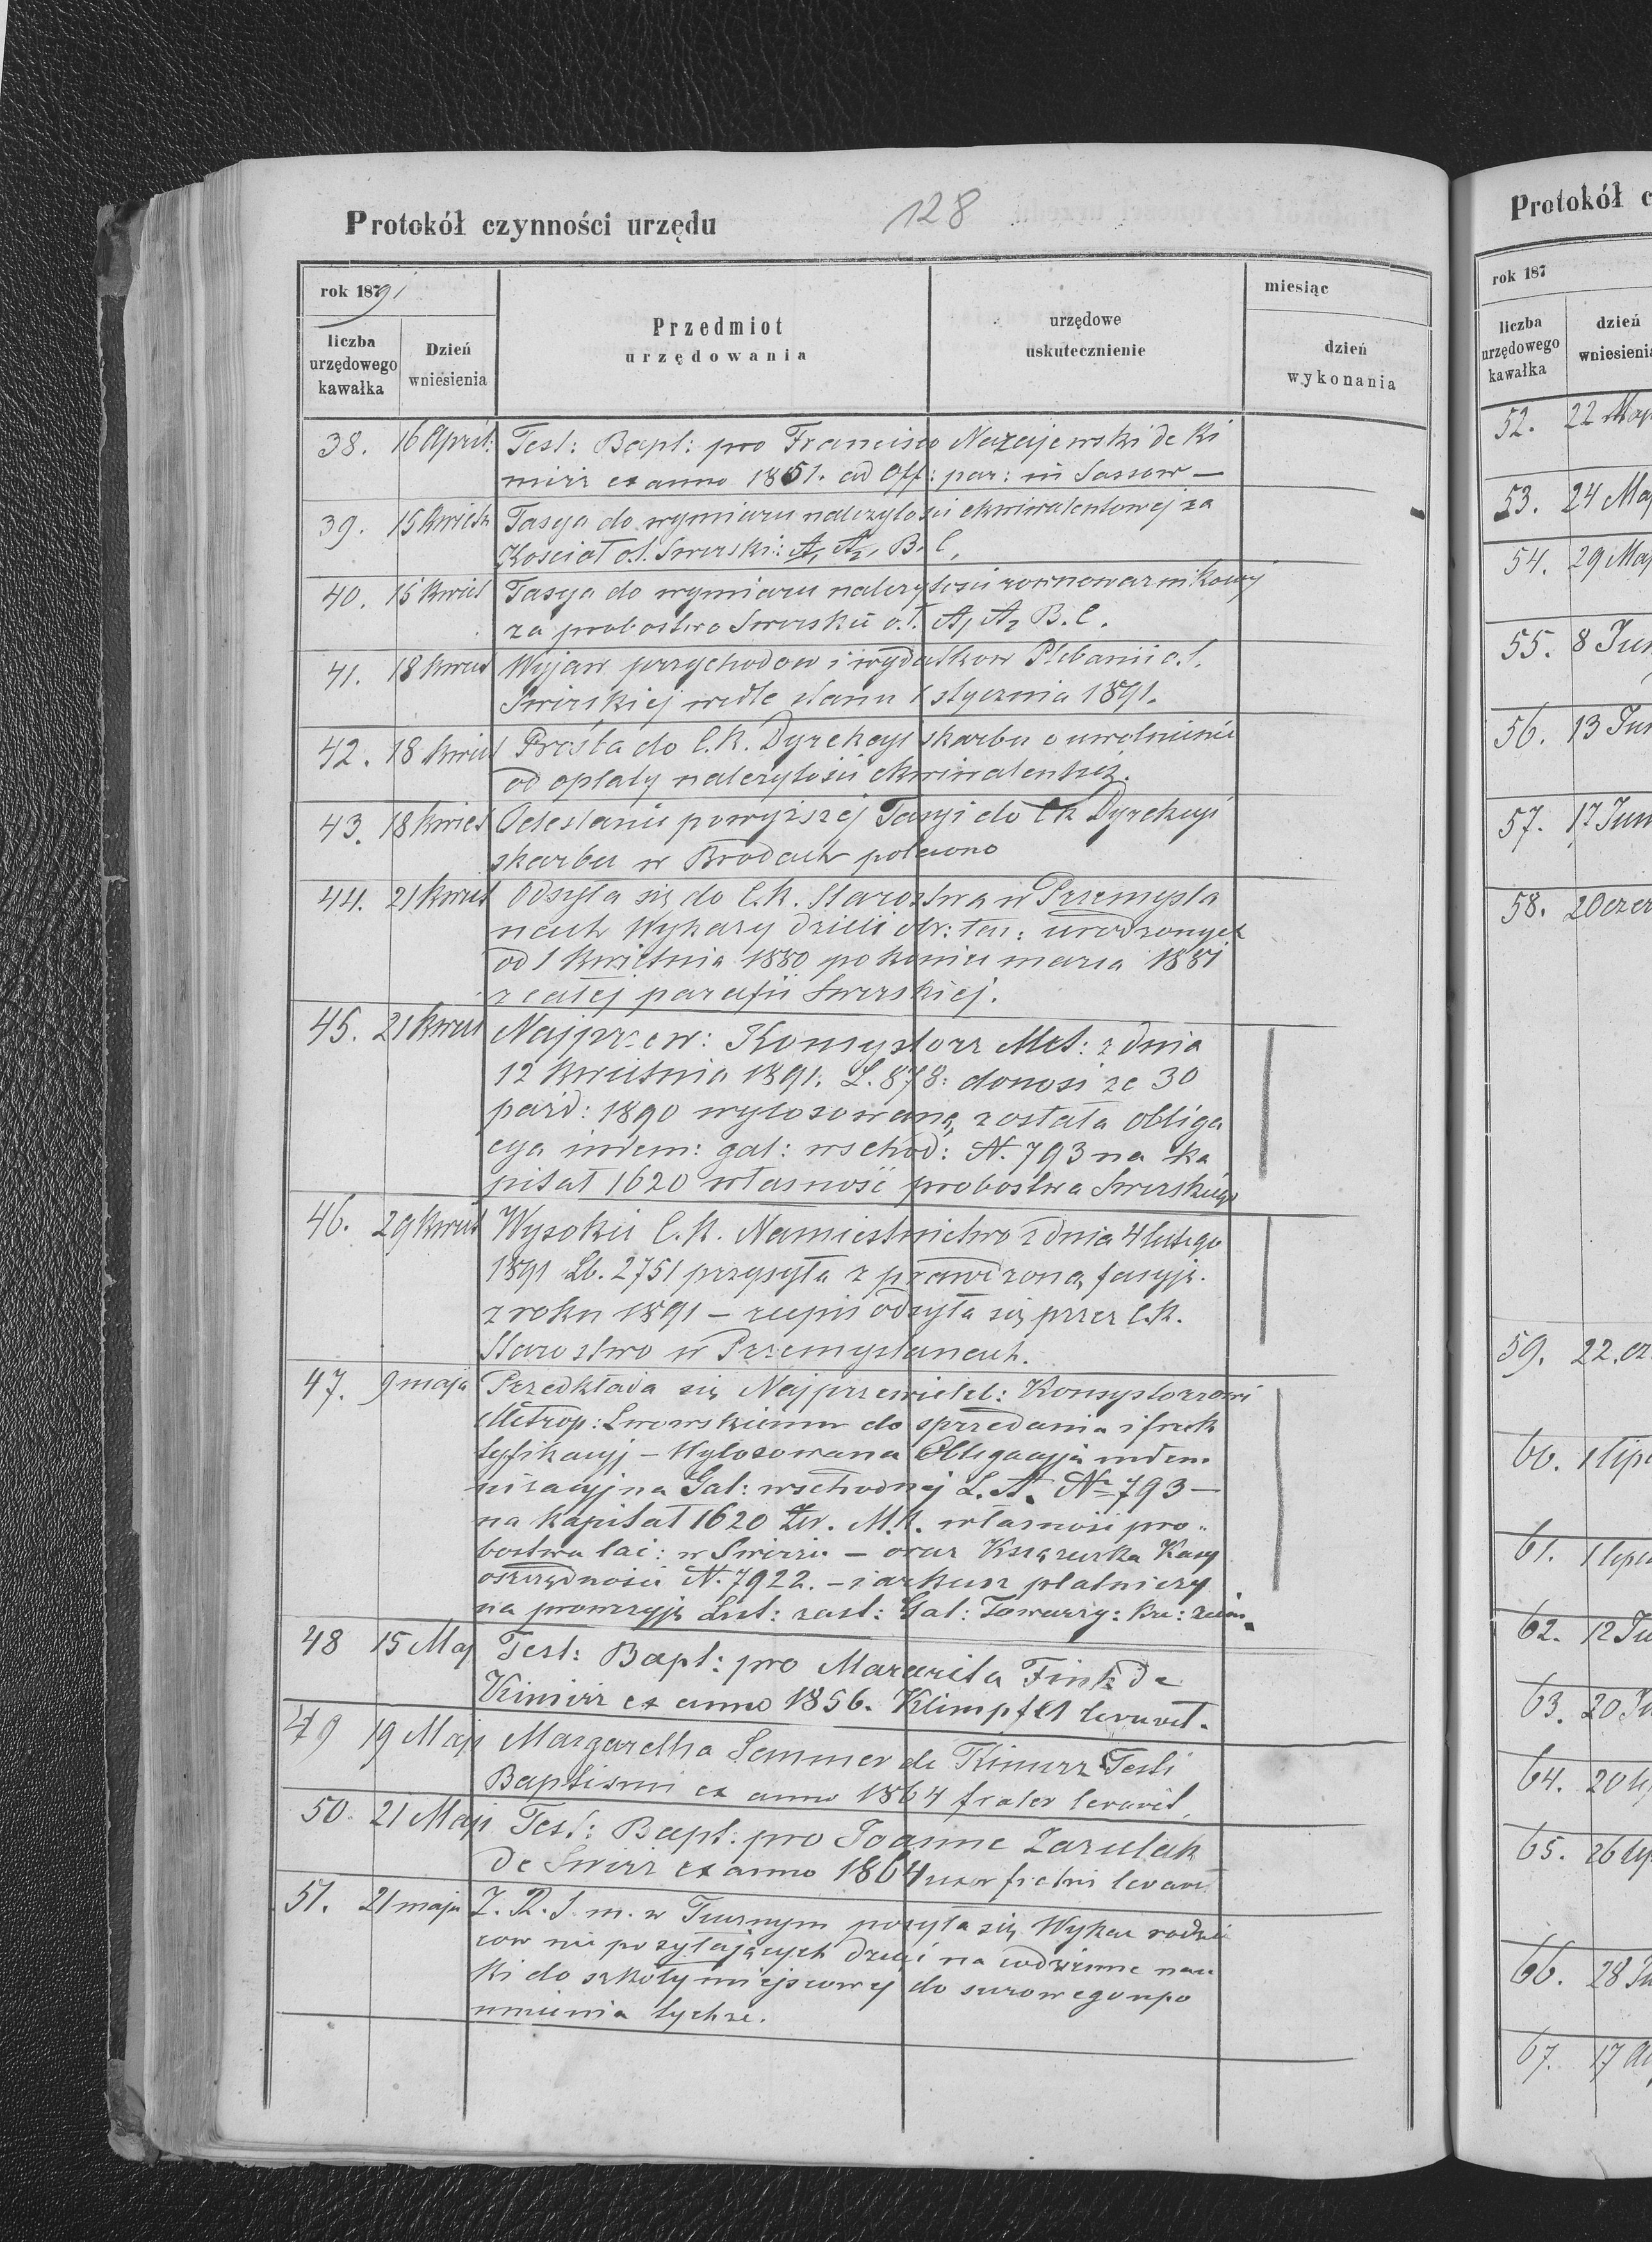 Protokół czynności urzędu
128
rok 18791
miesiąc
liczba urzędowego kawałka
Dzień wniesienia
Przedmiot urzędowania
urzędowe uskutecznienie
dzień wykonania
38. 16 April: Test: Bapt: pro Francisco Nazajewski de Ki
mirz ex anno 1861. ad Off: par: in Sassow —
39. 15 Kwiet Fasya do wymiaru należytości ekwiwalentowej za
Kościał o.ł. Swirski: A, A2, B. C,
40. 15 Kwiet Fasya do wymiaru należytości rownoważnikowej
za probostwo Swirskie o.ł. A1 A2 B. C.
41. 18 Kwiet Wyjaw przychodow i wydatkow Plebanii o.ł.
Swirskiej wedle stanu 1 stycznia 1891.
42. 18 Kwiet Prośba do C.K. Dyrekcyi skarbu o uwolnienie
od opłaty należytości ekwiwalentnej.
43. 18 Kwiet Odesłanie powyższej Fasyi do CK Dyrekcyi
skarbu w Brodach polecono
44. 21 Kwiet Odsyła się do C.K. Starostwa w Przemyśla
nach Wykazy dzieci obr: łac: urodzonych
od 1 Kwietnia 1880 po koniec marca 1881
z całej parafii Swirskiej.
45. 21 Kwiet Najprzew: Konsystorz Met: z dnia
12 Kwietnia 1891. L. 878: donosi że 30
paźd: 1890 wylosowaną została obliga
cya indem: gal: wschod: N. 793 na ka
pitał 1620 własność probostwa Swirskiego
46. 29 Kwiet Wysokie C.K. Namiestnictwo z dnia 4 lutego
1891 Lb. 2751 przysyła sprawdzoną fasyję.
z roku 1891 — recepis odsyła się przez C.K.
Starostwo w Przemyślanach.
47. 9 maja Przedkłada się Najprzewiel: Konsystorzowi
Metrop: Lwowskiemu do sprzedania i fruk
tyfikacyj — Wylosowana Obligacyja indem
nizacyjna Gal: wschodniej L. A. No 793 —
na kapitał 1620 Złr. M.K. własności pro-
bostwa łac: w Swirzu — oraz Książeczka Kasy
oszczędności N. 7922. — i arkusz płatniczy
na prowizyję List: zast: Gal: Towarzy: Kre: ziem.
48 15 Maj Test: Bapt: pro Margarita Fink de
Kimirz ex anno 1856. Klimpfel levavit.
49 19 Maji Margaretha Semmer de Kimirz Testi
Baptismi ex anno 1864 frater levavit.
50. 21 Maji Test: Bapt: pro Joanne Zarulak
de Swirz ex anno 1864 uxor fratri levavit
51. 21 maja Z. R. S. m. w posyła się Wykaz rodzi
cow nie posyłających dzieci na codzienne nau
ki do szkoły miejscowej do surowego upo
mnienia tychże.
Protokół c
rok 187
liczba urzędowego kawałka
dzień wniesieni
52. 22 Maj
53. 24 Maj
54. 29 Maj
55. 8 Jun
56. 13 Jun
57. 17 Jun
58. 20 czer
59. 22. cz
60. 1 lipc
61. 1 lipc
62. 12 Ju
63. 20 Ju
64. 20 li
65. 26 lip
66. 28 Ju
67. 17 Au